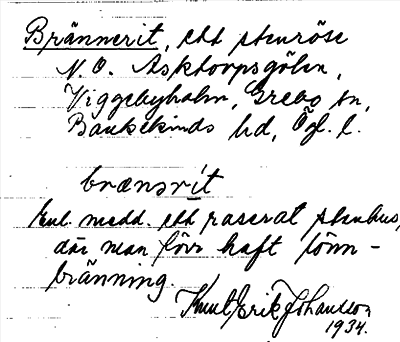 Brännerit, ett stenröse
N.O. Asktorpsgölen,
Viggebyholm, Grebo sn,
Bankekinds hd, Ögl. l.
brænsrı́t
Enl. medd. ett raserat stenhus,
där man förr haft lönn-
bränning.
Knut Erik Johansson
1934.